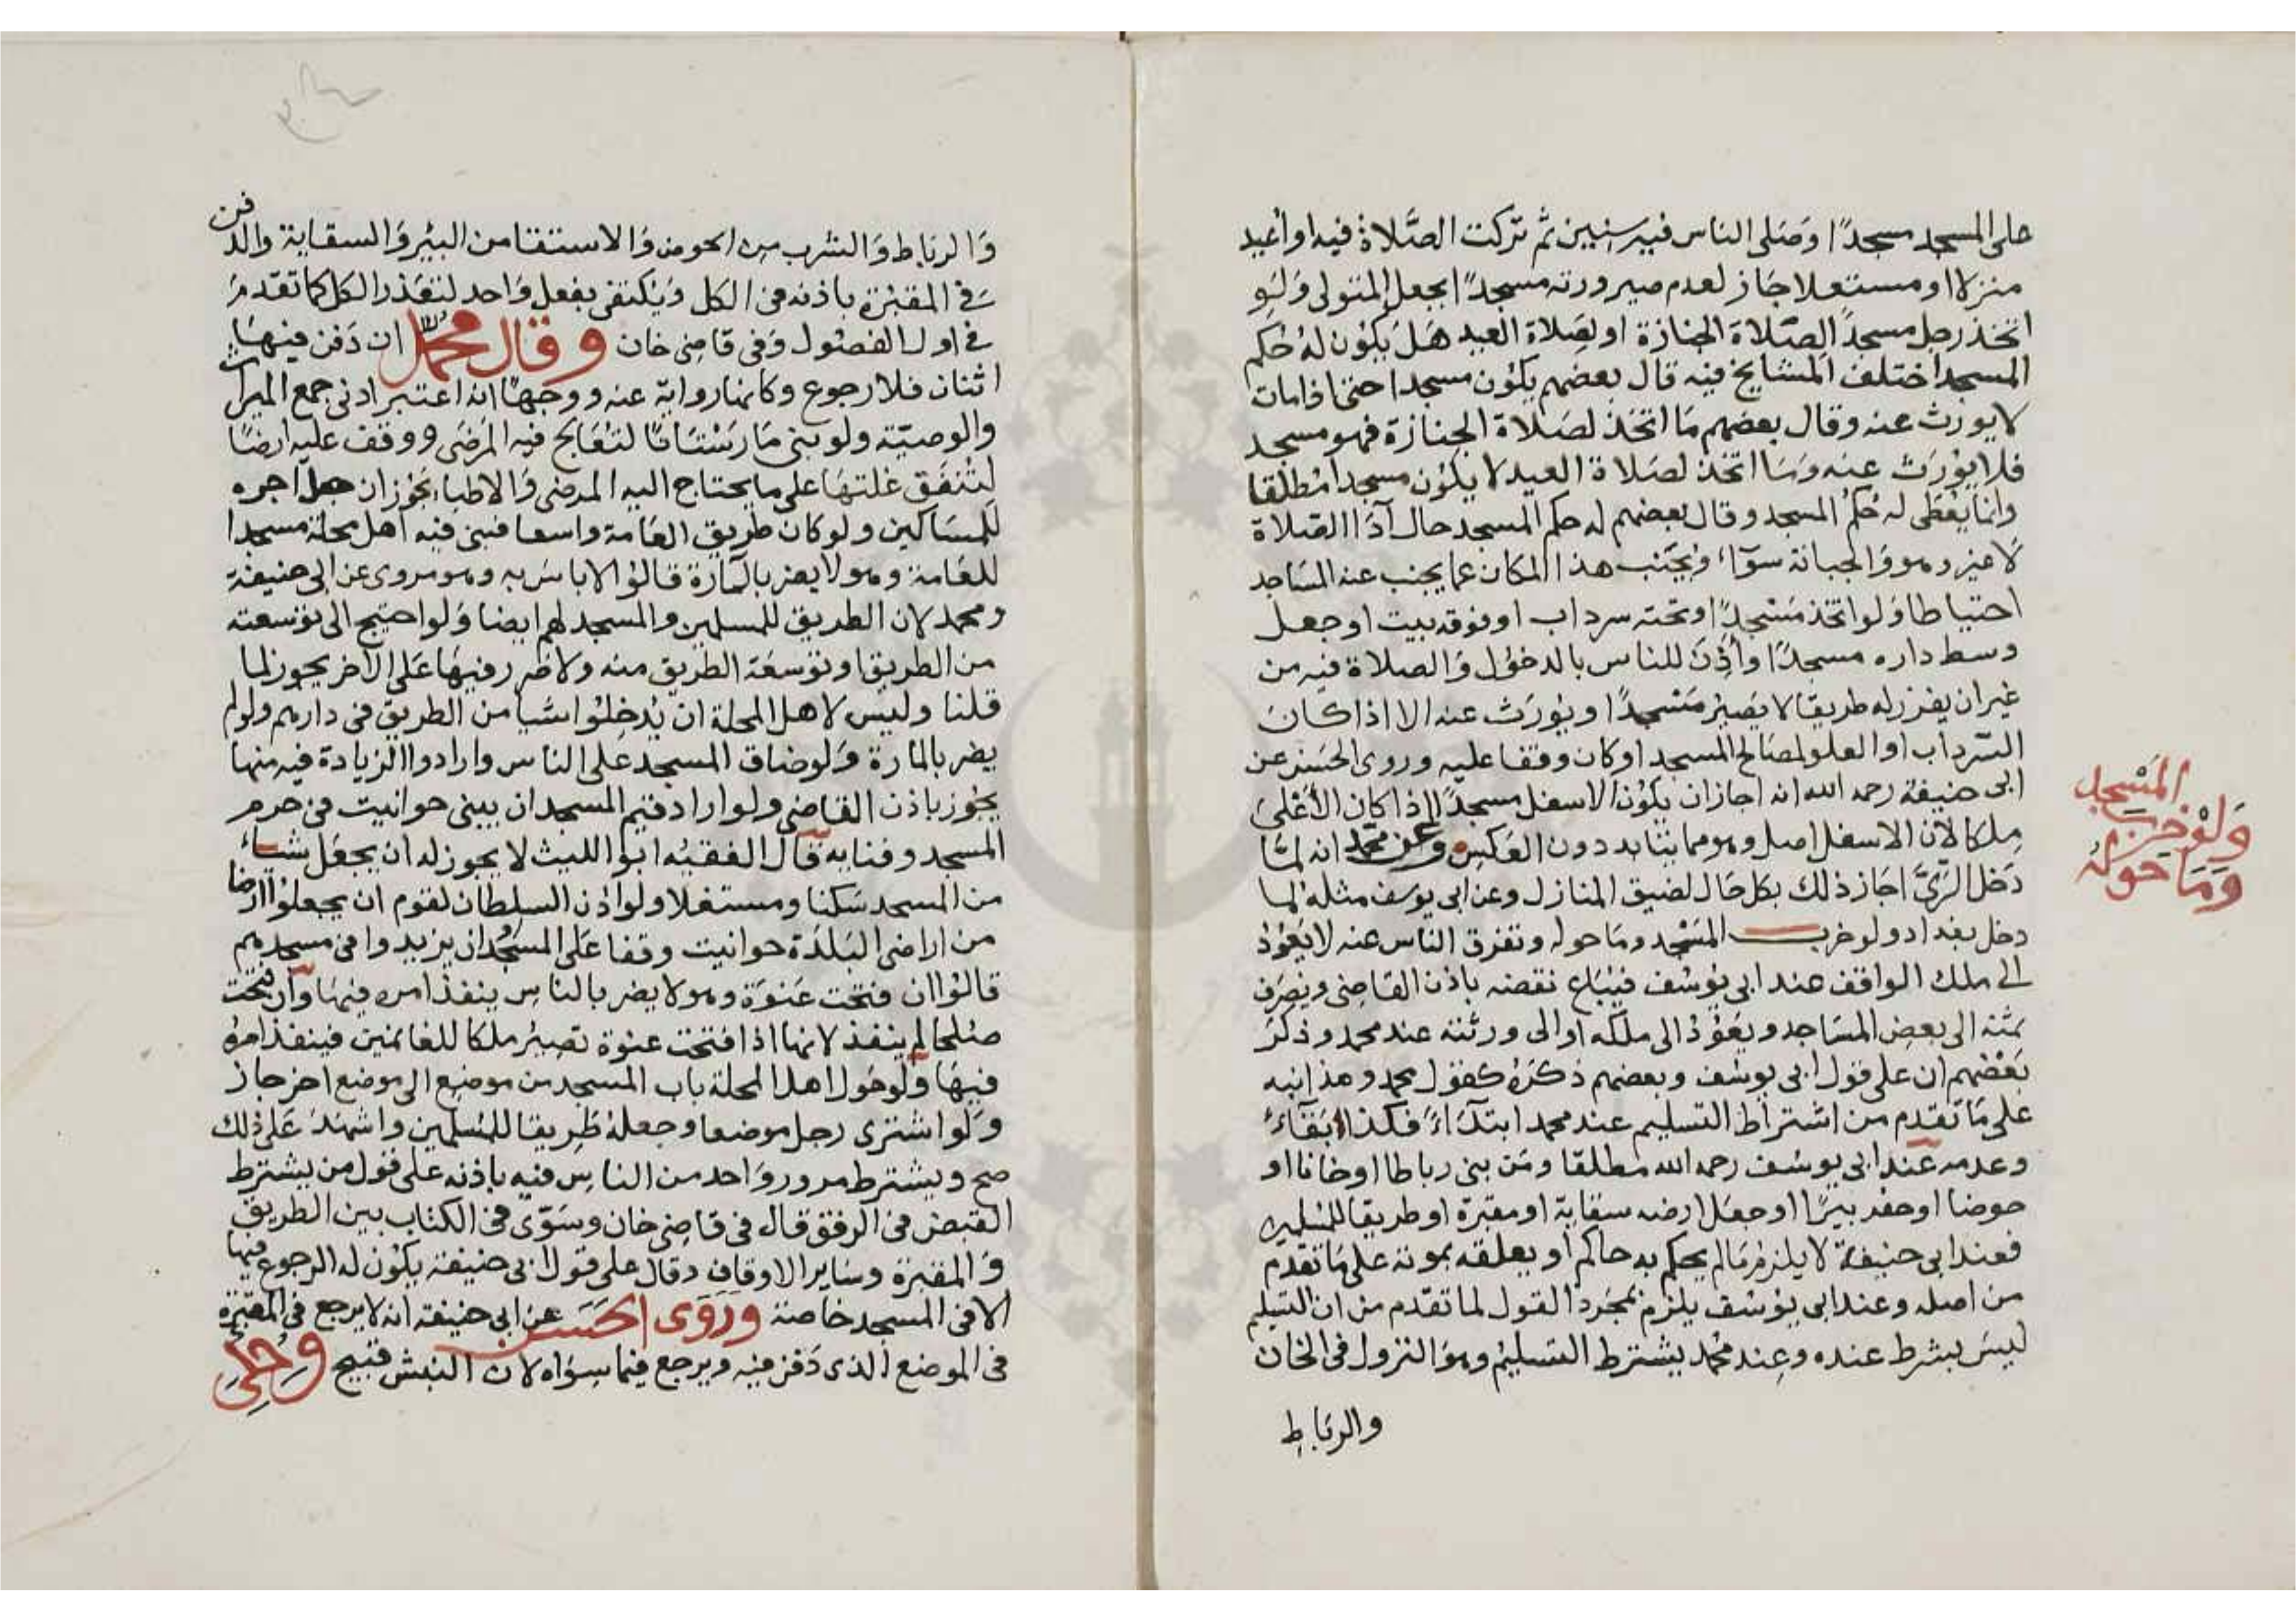 على المسجد مسجدًا وصَلى الناس فيه سنين ثم تركت الصَّلاة فيه او أعيد
منزلا او مستغلا جَاز لعدم صيرورته مسجدًا بجعل المتولى وَلَو
اتخذ رجل مسجدًا لصَلاة الجنازة او لصَلاة العيد هَل يكون لهُ حُكم
المسجد اختلف المشايخ فيه قال بعضهم يكون مسجدا حتى اذا مات
لا يورث عنه وقال بعضهم مَا اتخذ لصَلاة الجنازة فهو مسجد
فلا يُورَث عنه ومَا اتخذ لصَلاة العيد لا يكون مسجدا مُطلقا
وانما يُعْطى له حُكمُ المسجد وقال بعضهم له حكم المسجد حال اَدَا الصَّلاة
لا غير وهو والجبانة سوَآء ويُجَنب هذا المكان عما يجنب عنه المسَاجد
احتياطا وَلو اتخذ مَسْجدًا وتحته سرداب او فوقه بيت او جعل
وسط داره مسجدًا وأذِنَ للناس بالدخول وَالصلاة فيه من
غير ان يفرز له طريقا لا يَصير مَسْجدًا ويُورَث عنه الا اذا كان
السّرداب او العلو لمصَالح المسجد او كان وقفا عليه وروى الحَسَن عن
ابى حنيفة رحمه الله انه اجاز ان يكون الاسفل مسجدًا اذا كان الأعْلى
مِلكا لأن الاسفل اصل وهو مما يتابد دون العَكس وعن محمّد انه لمّا
دَخل الرّيَّ اجَاز ذلك بكل حَال لضيق المنازل وعن ابى يوسف مثله لما
دخل بغداد ولو خرب المسْجد ومَا حوله وتفرق الناس عنه لا يَعُود
الى ملك الواقف عند ابى يُوسُف فيُبَاع نقضه باذن القاضى ويُصرَف
ثمنه الى بعض المسَاجد ويَعُودُ الى ملكه او الى ورثته عند محمد وذكرَ
بَعْضهم ان على قول ابى يوسُف وبعضهم ذكرَهُ كقول محمد وهذا بنيه
على مَا تقدم من اشتراط التسليم عند محمد ابتدَآءً فكذا بَقَآءً
وعدمه عند ابى يوسُف رحمه الله مطلقا ومَن بنى رباطا او خانا او
حوضا او حفر بيرًا او جعل ارضه سقاية او مقبرة او طريقا للمسلمين
فعند ابى حنيفة لا يلزم مَا لم يحكم به حاكم او يعلقه بموته على مَا تقدم
من اصله وعند ابى يُوسُف يلزم بمجَرد القول لما تقدم من ان التسليم
ليسَ بشرط عنده وعند محمد يشترط التسليم وهوَ النزول فى الخان
والرباط
المَسْجد
وَلوْ خرب
وَمَا حولهُ
وَالرباط وَالشرب من الحوض وَالاستقا من البير وَالسقاية والدفن
فى المقبرة باذنه فى الكل وَيُكتفى بفعل وَاحد لتعذر الكل كما تقدم
فى اول الفصُول وَفى قاضى خان وقال محمد ان دَفن فيهَا
اثنان فلا رجوع وكانها رواية عنه ووجههَا انه اعتبر ادنى جمع الميراث
والوصيّة ولو بنى مَارَسْتَانًا لتعَالج فيه المَرضَى ووقف عليه ارضًا
لتنفق غلتهَا على ما يحتاج اليه المرضى وَالاطباء يجُوز ان جعل اجره
للمسَاكين ولو كان طريق العَامة واسعا فبنى فيه اهل محلة مسجدا
للعَامة وهو لا يضر بالمارة قالوا لا باس به وهو مروى عن ابى حنيفة
ومحمد لان الطريق للمسلمين والمسجد لهم ايضا وَلو احتيج الى توسعته
من الطريق او توسعة الطريق منه ولا ضرر فيهَا عَلى الآخر يجوز لما
قلنا وليسَ لاهل المحلة ان يُدخِلوا شيا من الطريق فى دارهم ولو لم
يضر بالمارة وَلو ضاق المسجد عَلى الناس وارادوا الزيادة فيه منها
يجُوز باذن القاضى ولو اراد قيّم المسجد ان يبنى حوانيت فى حرم
المسجد وفنايه قال الفقيه ابوا الليث لا يجوز له ان يجعَل شيئًا
من المسجد سَكنا ومستغلا ولو اذن السلطان لقوم ان يجعلوا ارضا
من اراضى البَلدَة حوانيت وقفا عَلى المسجد ان يزيدوا فى مسجدهم
قالوا ان فتحت عَنوَة وهو لا يضر بالناس ينفذ امره فيهَا وان فتحت
صُلحا لم ينفذ لانها اذا فتحت عنوة تصير ملكا للغانمين فينفذ امرهُ
فيهَا وَلو حَول اهل المحلة باب المسجد من موضع الى موضع اخر جاز
وَلو اشترى رجل موضعا وجعلهُ طَريقا للمُسلمين واشهَدَ عَلى ذلك
صح ويشترط مرور وَاحد من الناس فيه باذنه على قول من يشترط
القبض فى الرفق قال فى قاضى خان وسَوّى فى الكتاب بين الطريق
وَالمقبرة وساير الاوقاف وقال على قول ابى حنيفة يكون له الرجوع فيها
الا فى المسجد خاصة وروَى الحسن عن ابى حنيفة انه لا يرجع فى المقبرة
فى الموضع الذى دَفن فيه ويرجع فيما سوَاه لان النبش قبيح وحُكِى